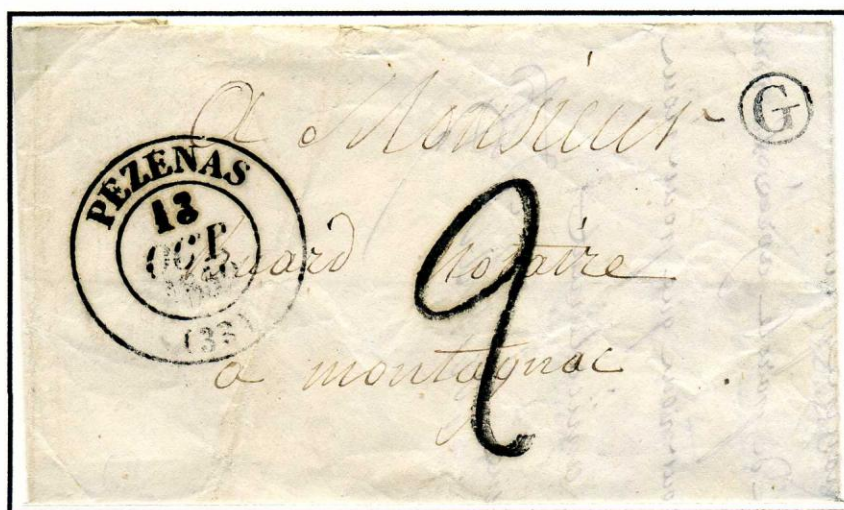 G
a Monsieur
PEZENAS
13
OCT.
1850
(33)
huard notaire
2
a montagnac